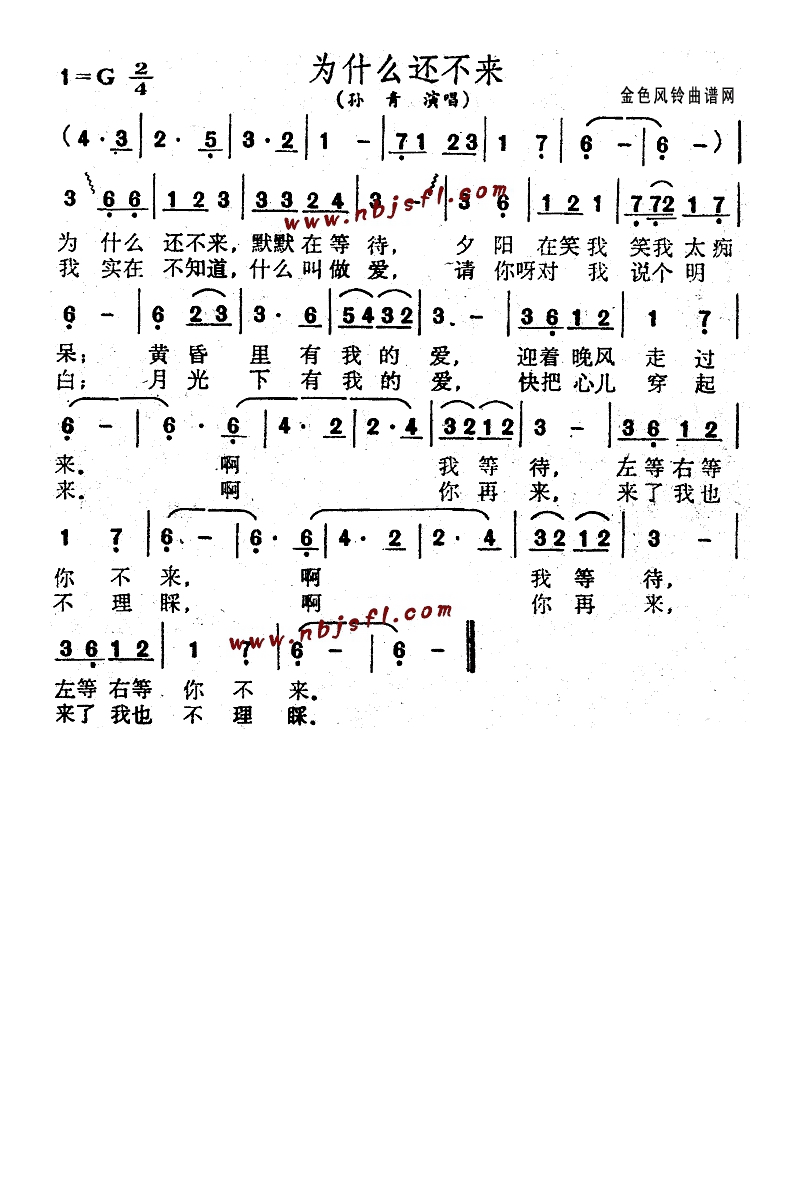 为什么还不来
1=G 2/4
(孙 青 演唱)
金色风铃曲谱网
(4·3 | 2· 5 | 3·2 | 1 - | 71 23 | 1 7 | 6 - | 6 -) |
3 66 | 123 | 33 24 | 3 - | 3 6 | 121 | 772 17 |
www.nbjsfl.com
为 什么 还不来, 默默在等待, 夕阳 在笑我 笑我太痴
我 实在 不知道, 什么叫做爱, 请你呀对 我 说个明
6 - | 6 23 | 3· 6 | 5432 | 3. - | 3612 | 1 7 |
呆; 黄昏 里 有我的 爱, 迎着晚风 走过
白; 月光 下 有我的 爱, 快把心儿 穿起
6 - | 6· 6 | 4· 2 | 2·4 | 3212 | 3 - | 3612 |
来. 啊 我等待, 左等右等
来. 啊 你再来, 来了我也
1 7 | 6 - | 6· 6 | 4· 2 | 2· 4 | 3212 | 3 - |
你 不 来, 啊 我等待,
不 理 睬, 啊 你再来,
www.nbjsfl.com
3612 | 1 7 | 6 - | 6 - ‖
左等 右等 你 不 来.
来了 我也 不 理 睬.